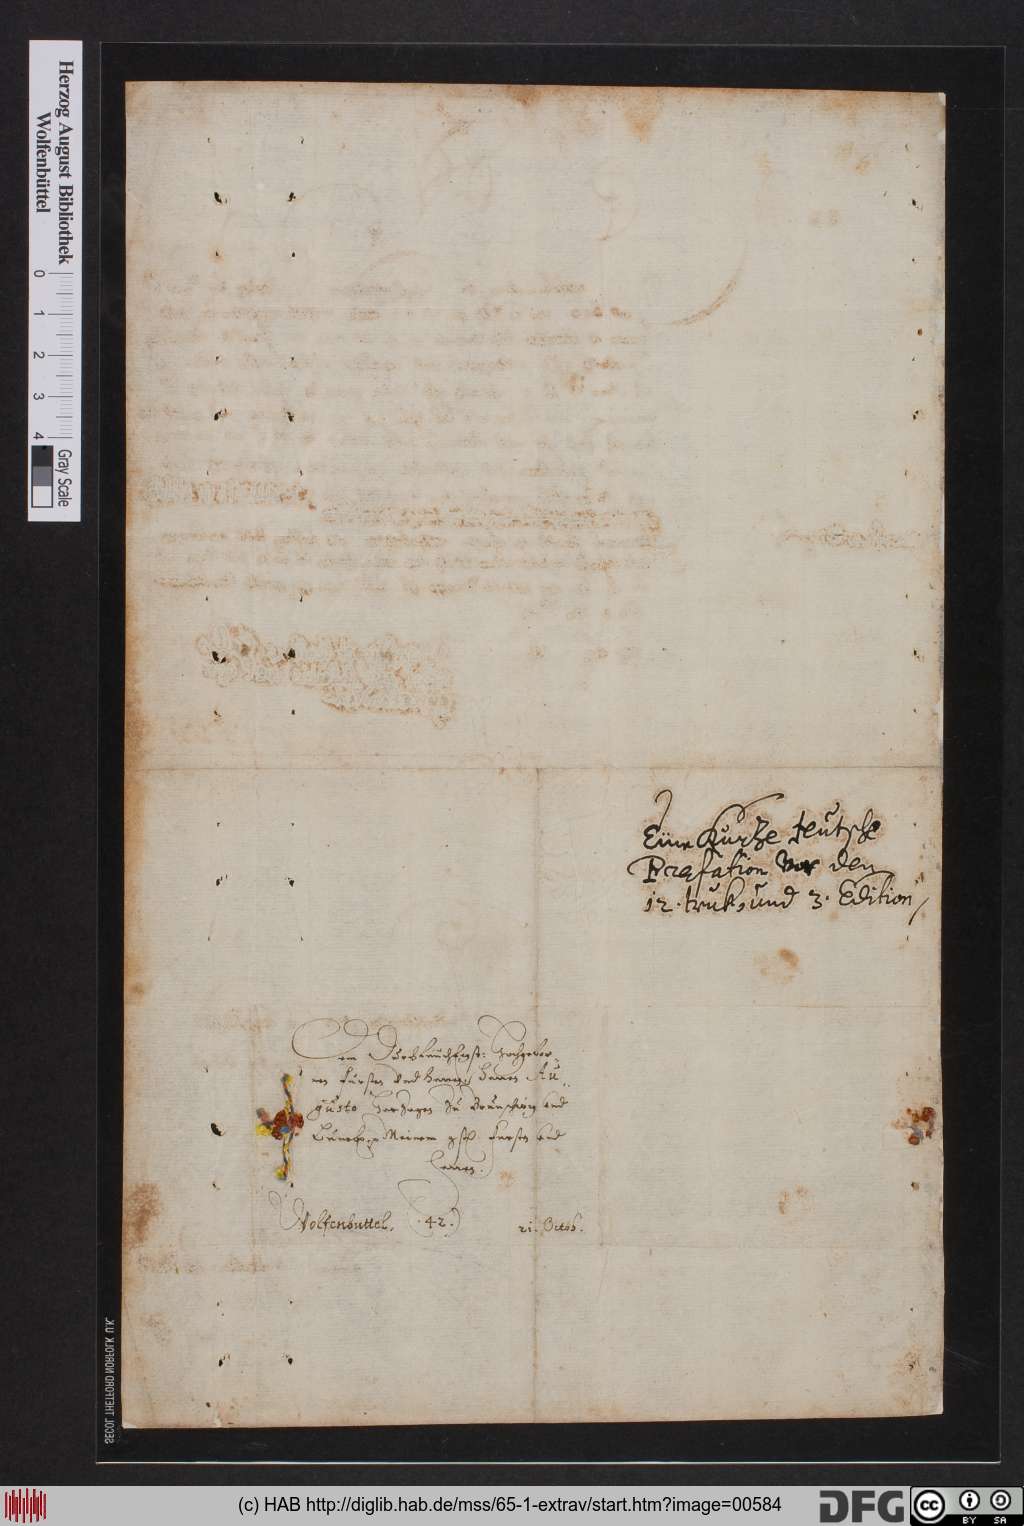 Herzog August Bibliothek
Wolfenbüttel
0 1 2 3 4
Gray Scale
Eine Kurtze teütsche
Præfation vor den
12. truk, und 3. Edition
Dem Durchleüchtigst: Hochgebor-
nen Fürsten und Herren, Herren Au-
gusto Hertzogen zu Braunschwig und
Lüneb: Meinem gstl. Fürsten und
Herren.
Wolfenbuttel. (42.) 21. Octob.
(c) HAB http://diglib.hab.de/mss/65-1-extrav/start.htm?image=00584
DFG
cc BY SA